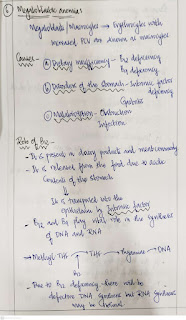 ⑥ Megaloblastic anemias
Megaloblasts / Macrocytes → Erythrocytes with
increased PCV are known as macrocytes
Causes - ⓐ Dietary insufficiency - B12 deficiency
B9 deficiency
ⓑ Disorders of the stomach - Intrinsic factor
deficiency
Gastrosis
ⓒ Malabsorption - Obstruction
Infection
Role of B12 -
- It is present in dairy products and meat
- It is released from the food due to acidic
contents of the stomach
It is transported into the
by Intrinsic factor
- B12 and B9 play vital role in the synthesis
of DNA and RNA
→ Methyl THF → THF → Thymidine → DNA
B12
- Due to B12 deficiency - there will be
defective DNA synthesis but RNA synthesis
may be